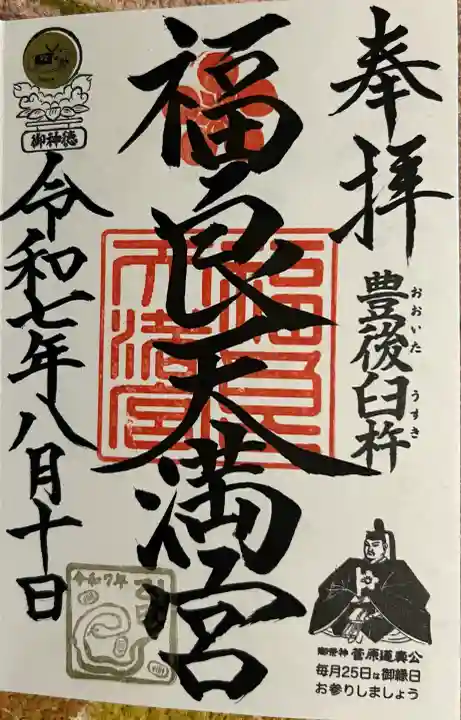 奉拝
豊後臼杵
おおいた
うすき
福良天満宮
福良天満宮
御祭神 菅原道真公
毎月25日は御縁日
お参りしましょう
御神徳
令和七年八月十日
令和7年